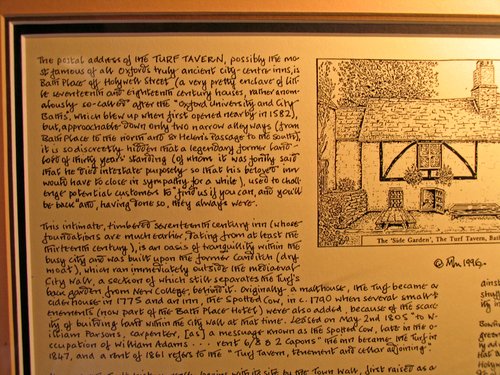 The postal address of the TURF TAVERN, possibly the mo-
st famous of all Oxford's truly ancient city-centre inns, is
Bath Place off Holywell Street (a very pretty enclave of litt-
le seventeenth and eighteenth century houses, rather anom-
alously so-called after the "Oxford University and City
Baths", which blew up when first opened nearby in 1582),
but, approachable down only two narrow alleyways (from
Bath Place to the north and St Helen's Passage to the south),
it is so discreetly hidden that a legendary former land-
lord of thirty years' standing (of whom it was fondly said
that he died intestate purposely so that his beloved inn
would have to close in sympathy for a while), used to chall-
enge potential customers to "find us if you can, and you'll
be back" and, having done so, they always were.
This intimate, timbered seventeenth century inn (whose
foundations are much earlier, dating from at least the
thirteenth century), is an oasis of tranquillity within the
busy city and was built upon the former Canditch (dry
moat), which ran immediately outside the mediaeval
City Wall, a section of which still separates the Turf's
back garden from New College, behind it. Originally a malthouse, the Turf became a
ciderhouse in 1775 and an inn, the Spotted Cow, in c. 1790 when several small t-
enements (now part of the Bath Place Hotel) were also added, because of the scarc-
ity of building land within the City Wall at that time. Leased on May 2nd 1805 "to W-
illiam Parsons, carpenter, [as] a messuage known as the Spotted Cow, late in the o-
ccupation of William Adams ... rent 6/8 & 2 Capons" the inn became the Turf in
1847, and a rent of 1861 refers to the "Turf Tavern, tenement and cellar adjoining".
The 'Side Garden', The Turf Tavern, Bath
© 1996
begins with its site by the Town Wall, first raised as a